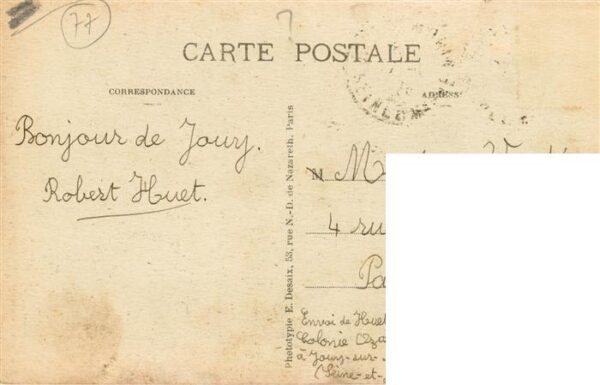 77
CARTE POSTALE
CORRESPONDANCE
ADRESSE
Bonjour de Jouy.
Robert Huet.
Phototypie E. Desaix, 53, rue N.-D. de Nazareth, Paris
M
4 ru
Pa
Envoi de Huet
Colonie
à Jouy-sur-
(Seine-et-